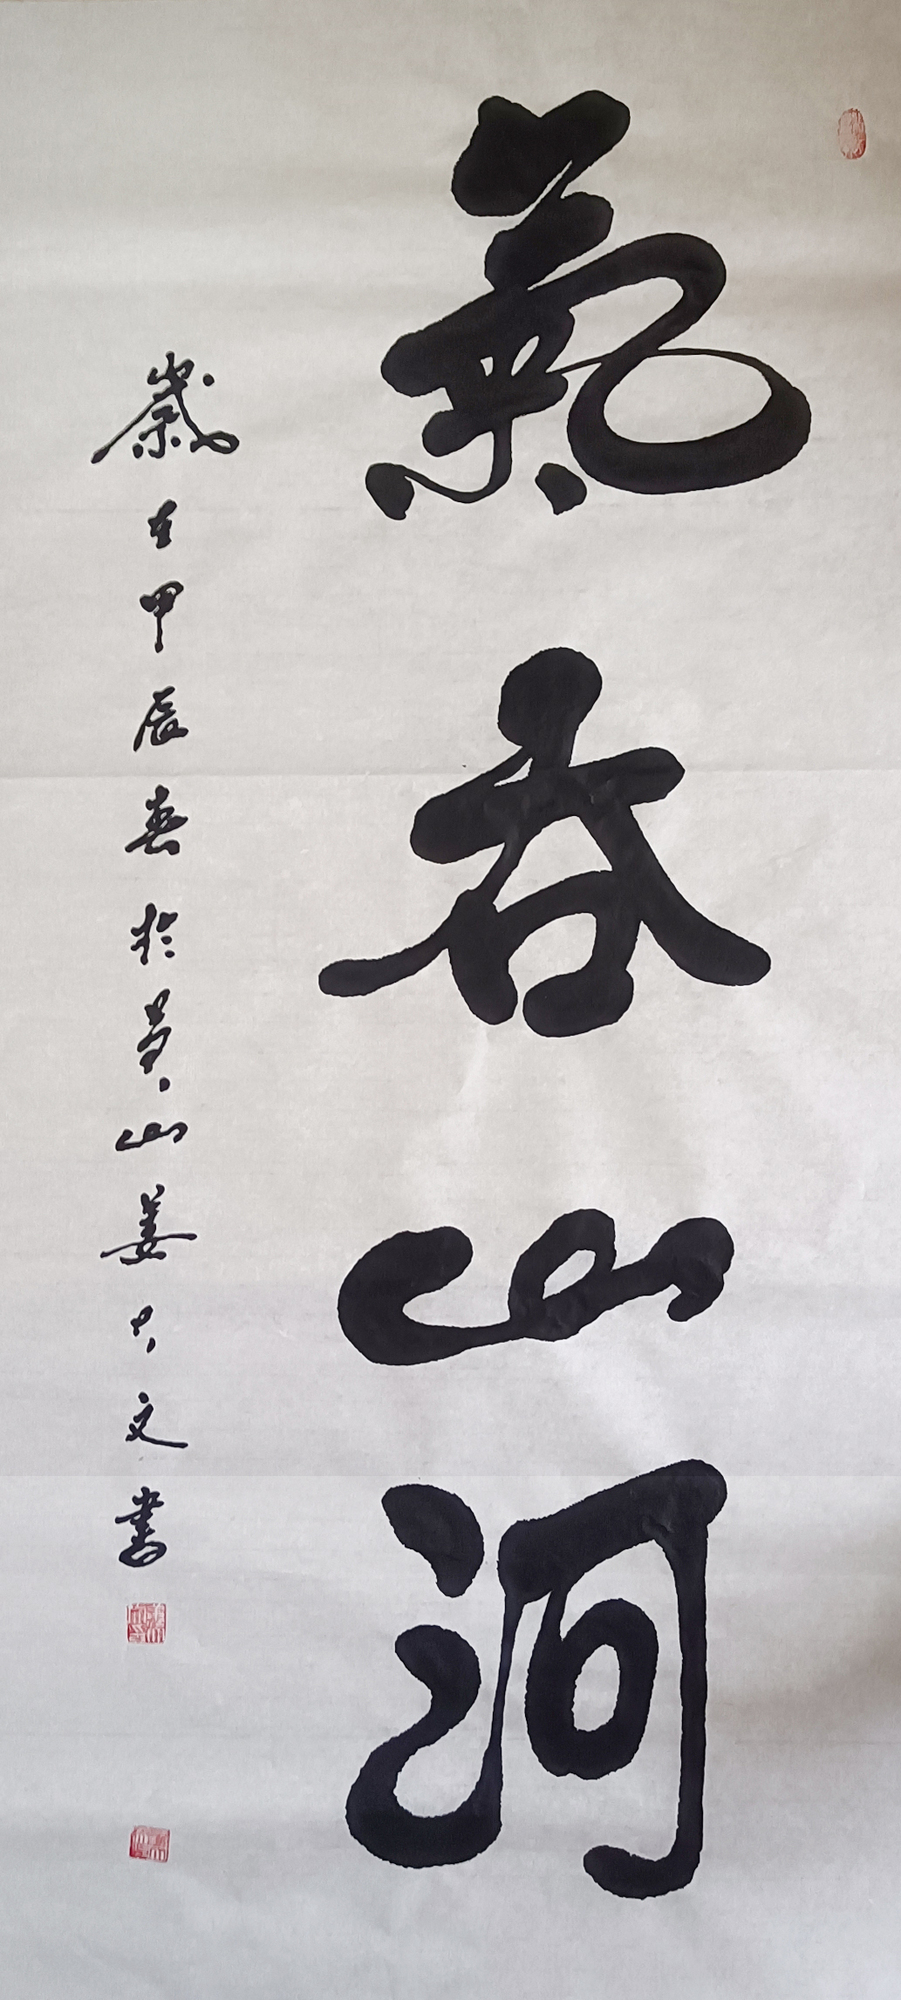 氣吞山河
歲在甲辰春於黄山姜大文書